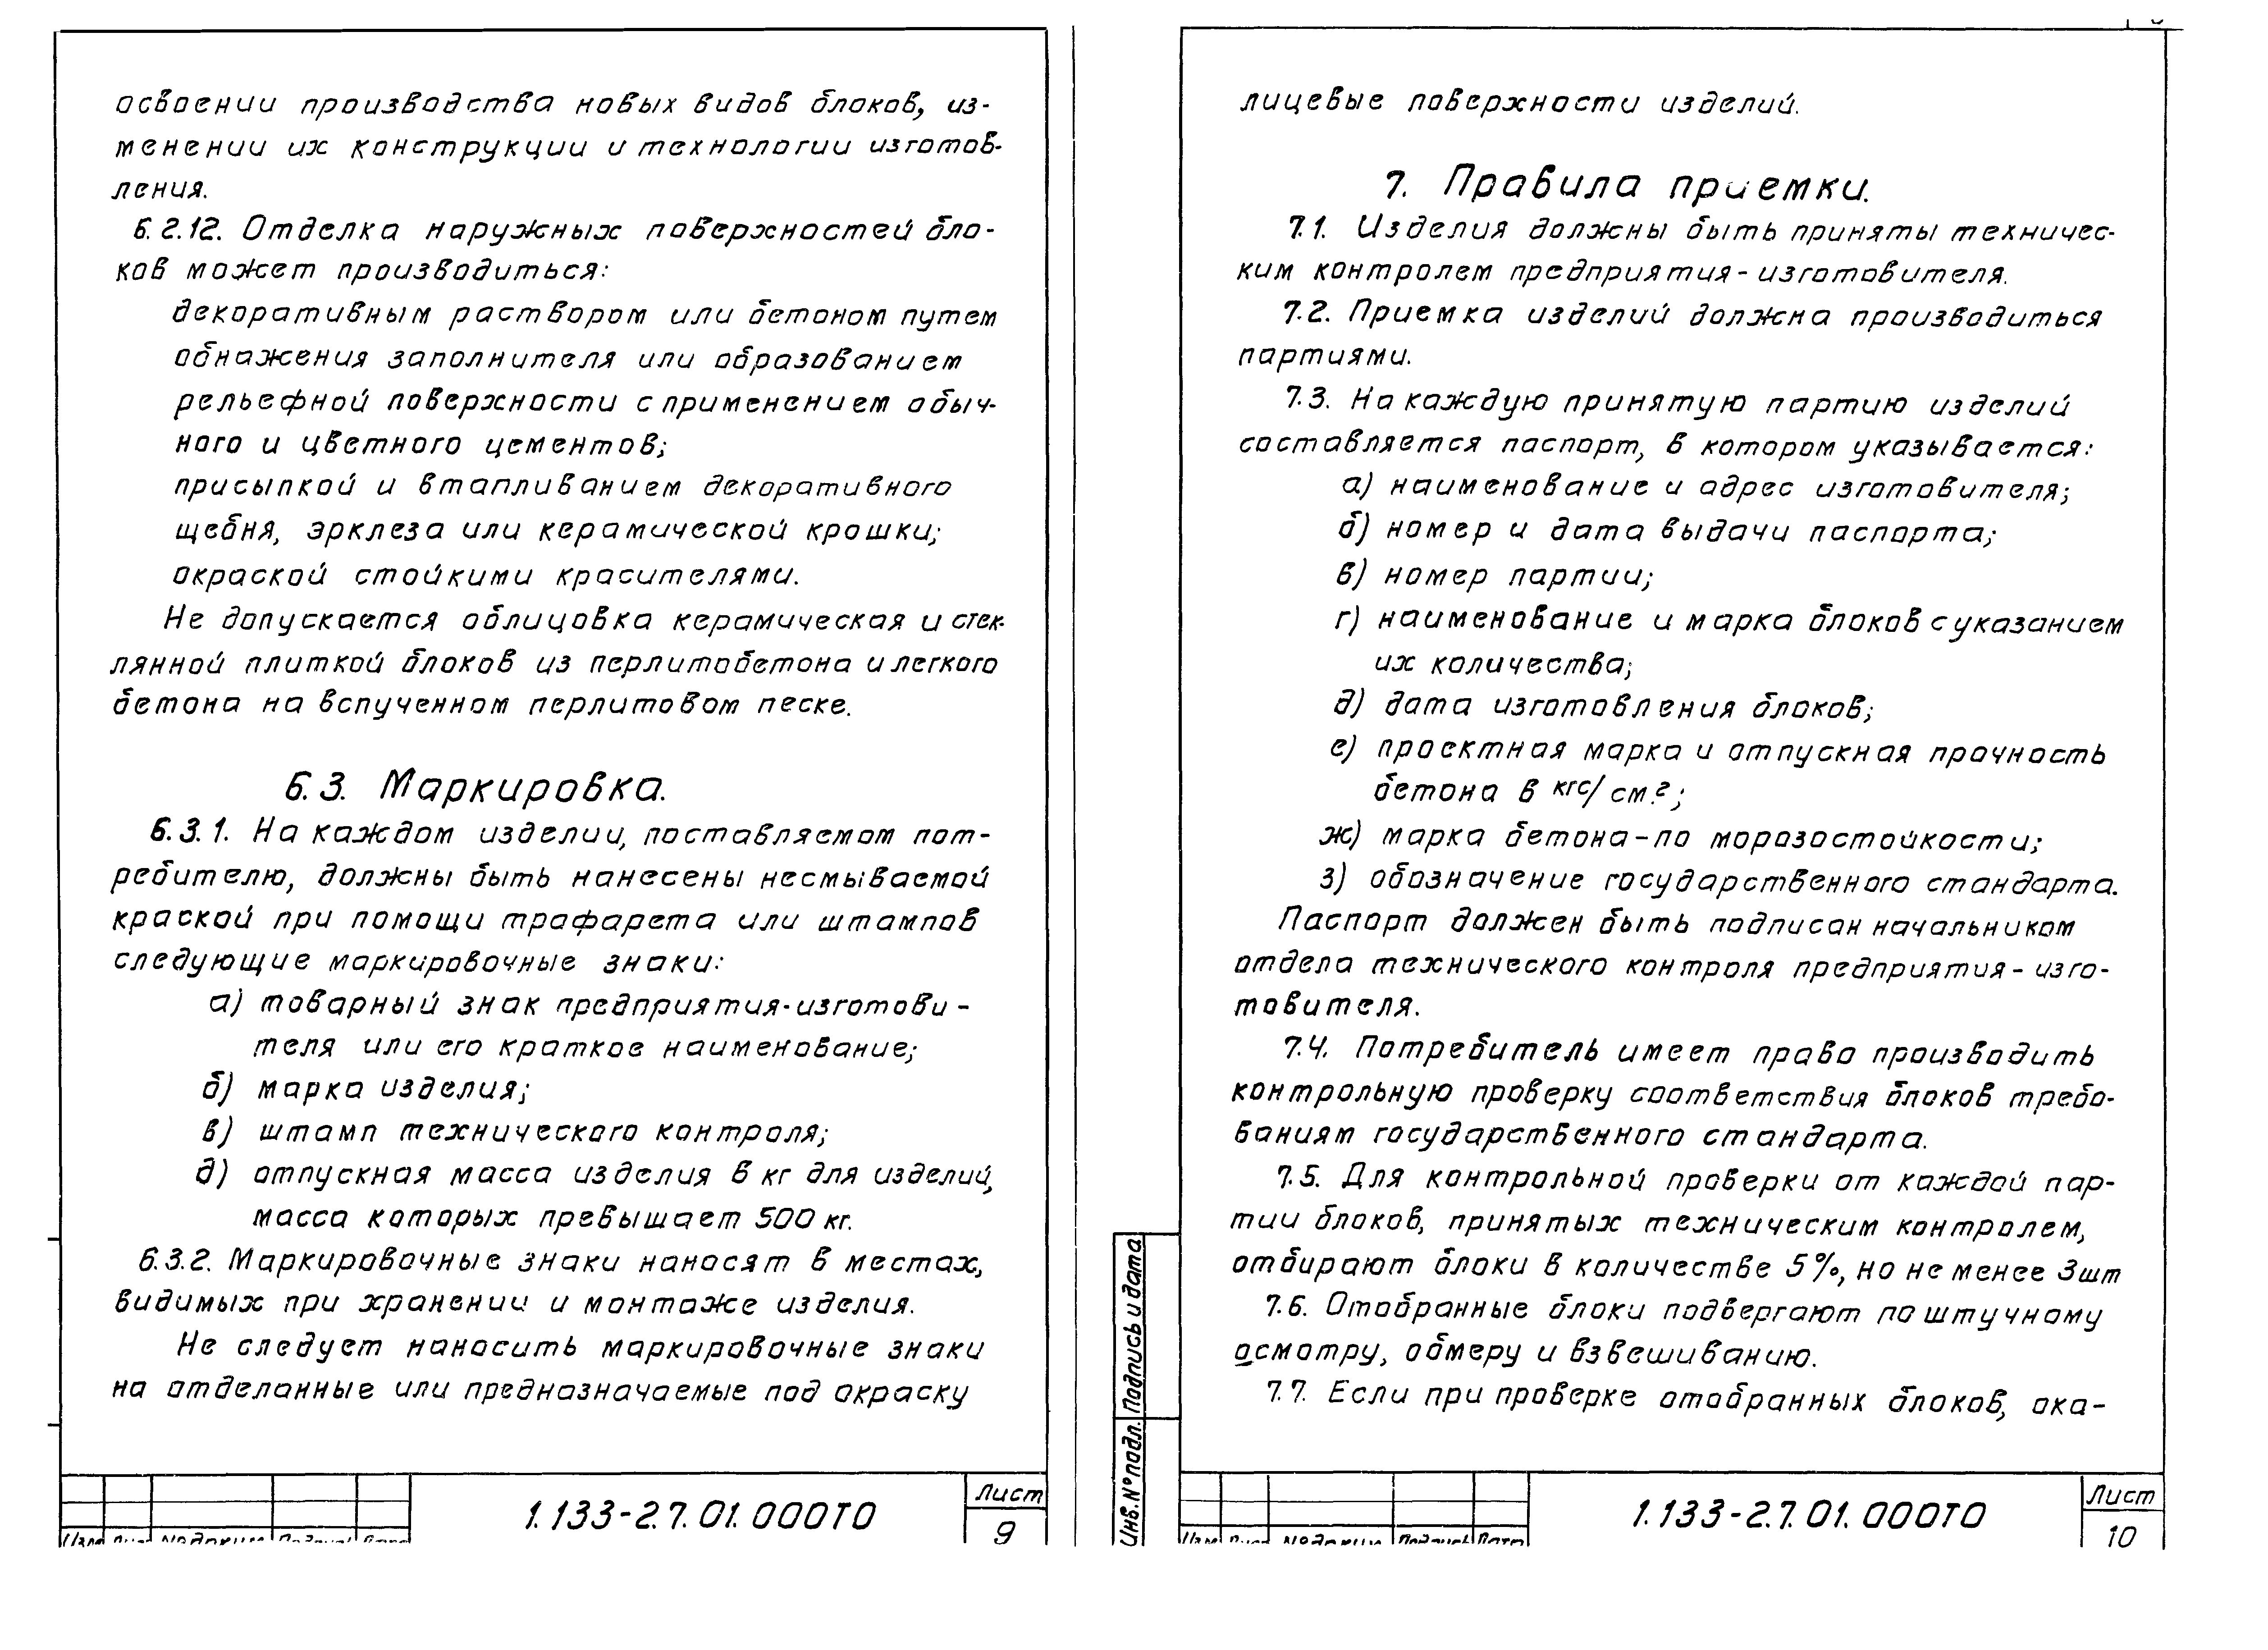 освоении производства новых видов блоков, из-
менении их конструкции и технологии изготов-
ления.
6.2.12. Отделка наружных поверхностей бло-
ков может производиться:
декоративным раствором или бетоном путем
обнажения заполнителя или образованием
рельефной поверхности с применением обыч-
ного и цветного цементов;
присыпкой и втапливанием декоративного
щебня, эрклеза или керамической крошки;
окраской стойкими красителями.
Не допускается облицовка керамическая и стек-
лянной плиткой блоков из перлитобетона и легкого
бетона на вспученном перлитовом песке.
6.3. Маркировка.
6.3.1. На каждом изделии, поставляемом пот-
ребителю, должны быть нанесены несмываемой
краской при помощи трафарета или штампов
следующие маркировочные знаки:
а) товарный знак предприятия-изготови-
теля или его краткое наименование;
б) марка изделия;
в) штамп технического контроля;
д) отпускная масса изделия в кг для изделий,
масса которых превышает 500 кг.
6.3.2. Маркировочные знаки наносят в местах,
видимых при хранении и монтаже изделия.
Не следует наносить маркировочные знаки
на отделанные или предназначаемые под окраску
1.133-2.7.01.000ТО
Лист
9
лицевые поверхности изделий.
7. Правила приемки.
7.1. Изделия должны быть приняты техничес-
ким контролем предприятия-изготовителя.
7.2. Приемка изделий должна производиться
партиями.
7.3. На каждую принятую партию изделий
составляется паспорт, в котором указывается:
а) наименование и адрес изготовителя;
б) номер и дата выдачи паспорта;
в) номер партии;
г) наименование и марка блоков с указанием
их количества;
д) дата изготовления блоков;
е) проектная марка и отпускная прочность
бетона в кгс/см.²;
ж) марка бетона-по морозостойкости;
з) обозначение государственного стандарта.
Паспорт должен быть подписан начальником
отдела технического контроля предприятия-изго-
товителя.
7.4. Потребитель имеет право производить
контрольную проверку соответствия блоков требо-
ваниям государственного стандарта.
7.5. Для контрольной проверки от каждой пар-
тии блоков, принятых техническим контролем,
отбирают блоки в количестве 5%, но не менее 3шт
7.6. Отобранные блоки подвергают поштучному
осмотру, обмеру и взвешиванию.
7.7. Если при проверке отобранных блоков, ока-
Инв.№подл. Подпись и дата
1.133-2.7.01.000ТО
Лист
10